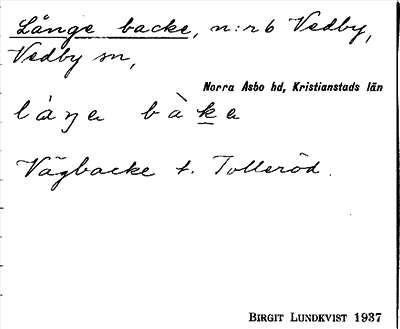 Långe backe, n:r 6 Vedby,
Vedby sn,
Norra Åsbo hd, Kristianstads län
láŋə bàkə
Vägbacke t. Tolleröd.
BIRGIT LUNDKVIST 1937